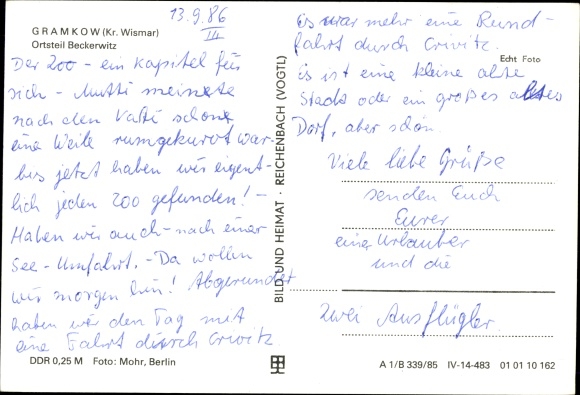 13.9.86
III
GRAMKOW (Kr. Wismar)
Ortsteil Beckerwitz
Der Zoo - ein Kapitel für
sich - Mutti meinte
nach dem Vati schon
eine Weile rumgekurvt war -
bis jetzt haben wir eigent-
lich jeden Zoo gefunden! -
Haben wir auch - nach einer
See-Umfahrt. - Da wollen
wir morgen hin! Abgerundet
haben wir den Tag mit
eine Fahrt durch Crivitz.
DDR 0,25 M Foto: Mohr, Berlin
BILD UND HEIMAT · REICHENBACH (VOGTL)
Es war mehr eine Rund-
fahrt durch Crivitz.
Echt Foto
Es ist eine kleine alte
Stadt oder ein großes altes
Dorf, aber schön.
Viele liebe Grüße
senden Euch
Eurer
einer Urlauber
und die
zwei Ausflügler.
A 1/B 339/85 IV-14-483 01 01 10 162